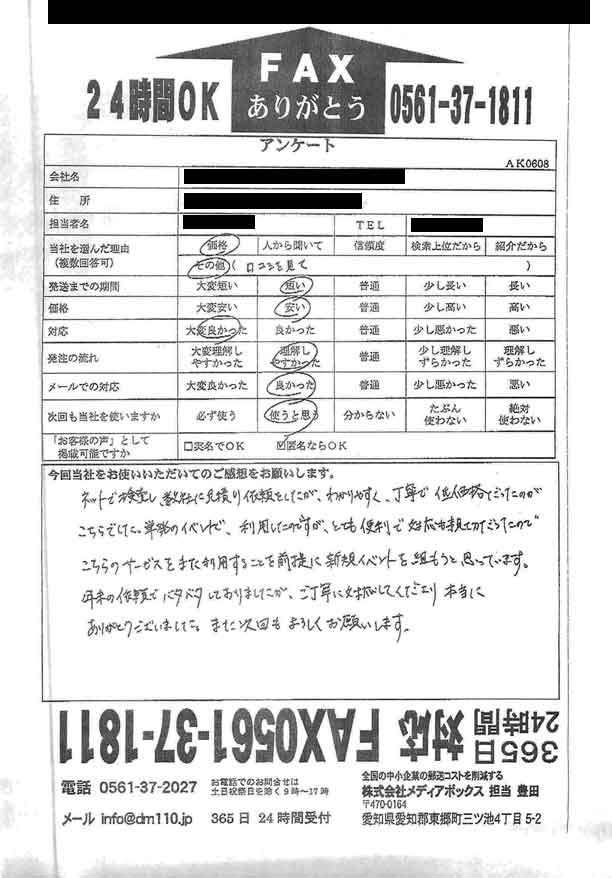 24時間OK
FAX
ありがとう
0561-37-1811
アンケート
AK0608
会社名
住 所
担当者名 TEL
当社を選んだ理由 (複数回答可) 価格 人から聞いて 信頼度 検索上位だから 紹介だから
その他 ( 口コミを見て )
発送までの期間 大変短い 短い 普通 少し長い 長い
価格 大変安い 安い 普通 少し高い 高い
対応 大変良かった 良かった 普通 少し悪かった 悪い
発注の流れ 大変理解しやすかった 理解しやすかった 普通 少し理解しずらかった 理解しずらかった
メールでの対応 大変良かった 良かった 普通 少し悪かった 悪い
次回も当社を使いますか 必ず使う 使うと思う 分からない たぶん使わない 絶対使わない
「お客様の声」として掲載可能ですか □実名でOK ☑匿名ならOK
今回当社をお使いいただいてのご感想をお願いします。
ネットで検索し 数社に見積り依頼をしたが、わかりやすく、丁寧で 低価格だったのが
こちらでした。単発のイベントで、利用したのですが、とても便利で 対応も親切だったので
こちらのサービスをまた利用することを前提に 新規イベントを組もうと思っています。
年末の依頼で バタバタしておりましたが、ご丁寧に対応してくださり 本当に
ありがとうございました。また次回も よろしくお願いします。
365日
24時間
対応 FAX0561-37-1811
電話 0561-37-2027
お電話でのお問合せは
土日祝祭日を除く9時〜17時
メール info@dm110.jp 365日 24時間受付
全国の中小企業の郵送コストを削減する
株式会社メディアボックス 担当 豊田
〒470-0164
愛知県愛知郡東郷町三ツ池4丁目5-2